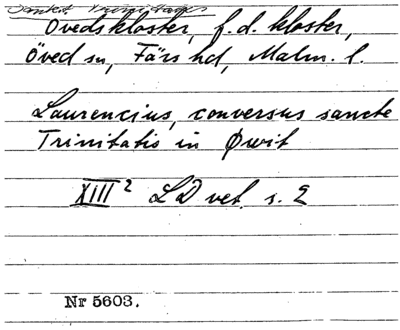 Övedskloster, f.d. kloster,
Öved sn, Färs hd, Malm. l.
Laurencius, conversus sancte
Trinitatis in Øwit
XIII 2 LD vet. s. 2
Nr 5603.